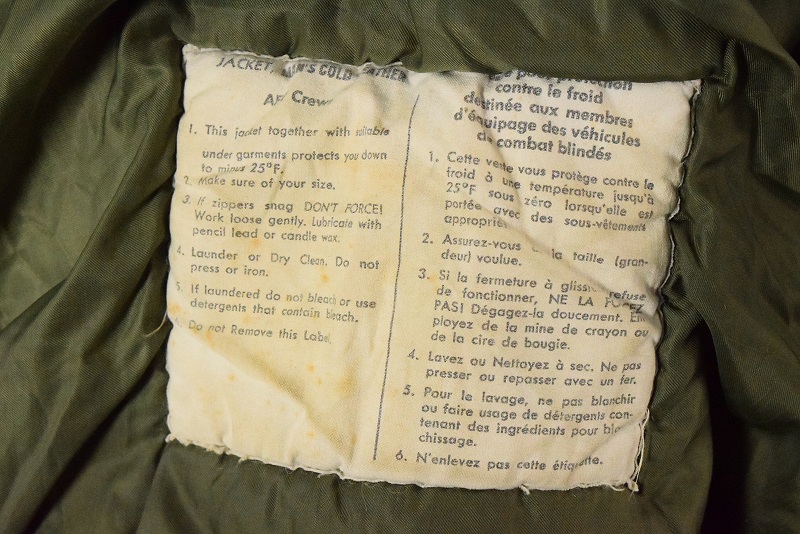 JACKET, MAN'S COLD WEATHER
AF Crew
1. This jacket together with suitable
under garments protects you down
to minus 25°F.
2. Make sure of your size.
3. If zippers snag DON'T FORCE!
Work loose gently. Lubricate with
pencil lead or candle wax.
4. Launder or Dry Clean. Do not
press or iron.
5. If laundered do not bleach or use
detergents that contain bleach.
Do not Remove this Label.
pour protection
contre le froid
destinée aux membres
d'équipage des véhicules
de combat blindés
1. Cette veste vous protège contre le
froid à une température jusqu'à
25°F sous zéro lorsqu'elle est
portée avec des sous-vêtements
appropriés
2. Assurez-vous la taille (gran-
deur) voulue.
3. Si la fermeture à glissi refuse
de fonctionner, NE LA FORCEZ
PAS! Dégagez-la doucement. Em
ployez de la mine de crayon ou
de la cire de bougie.
4. Lavez ou Nettoyez à sec. Ne pas
presser ou repasser avec un fer.
5. Pour le lavage, ne pas blanchir
ou faire usage de détergents con-
tenant des ingrédients pour bla
chissage.
6. N'enlevez pas cette étiquette.